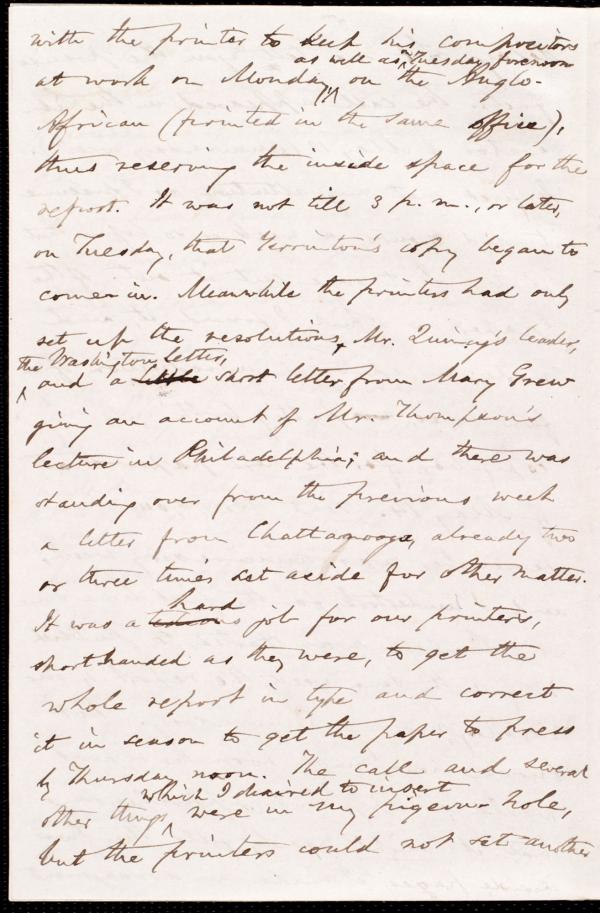 with the printer to keep his compositors
as well as on Tuesday forenoon
at work on Monday, on the Anglo-
African (printed in the same office),
thus reserving the inside space for the
report. It was not till 3 p.m., or later,
on Tuesday, that Yerrinton's copy began to
come in. Meanwhile the printers had only
set up the resolutions, Mr. Quincy's leader,
the Washington letter,
and a little short letter from Mary Grew
giving an account of Mr. Thompson's
lecture in Philadelphia; and there was
standing over from the previous week
a letter from Chattanooga, already two
or three times set aside for other matter.
hard
It was a tedious job for our printers,
shorthanded as they were, to get the
whole report in type and correct
it in season to get the paper to press
by Thursday noon. The call and several
which I desired to insert
other things were in my pigeon-hole,
but the printers could not set another